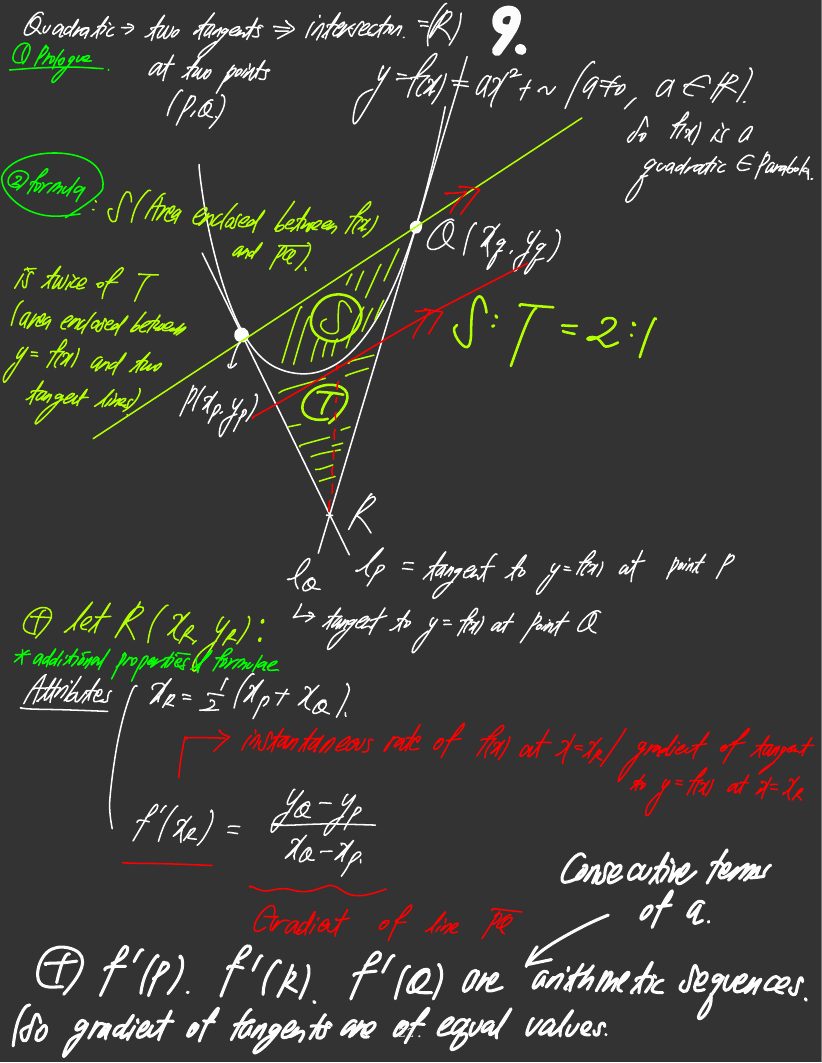 Quadratic → two tangents ⇒ intersection. =(R) 9.
① Prologue
at two points
(P,Q.)
y = f(x) = ax² + ~ (a≠0, a ∈ R).
So f(x) is a
quadratic ∈ Parabola.
② formula : S (Area enclosed between f(x)
and PQ).
is twice of T
(area enclosed between
y = f(x) and two
tangent lines)
Q(x_q, y_q)
S
S : T = 2 : 1
P(x_p, y_p)
T
R
l_Q
l_P = tangent to y = f(x) at point P
↳ tangent to y = f(x) at point Q
⊕ let R (x_R, y_R) :
* additional properties of formulae
Attributes
x_R = 1/2 (x_P + x_Q).
→ instantaneous rate of f(x) at x = x_R / gradient of tangent
to y = f(x) at x = x_R
f'(x_R) = (y_Q - y_P)/(x_Q - x_P)
Gradient of line PQ
Consecutive terms
of a.
⊕ f'(P). f'(R). f'(Q) are arithmetic sequences.
(So gradient of tangents are of equal values.